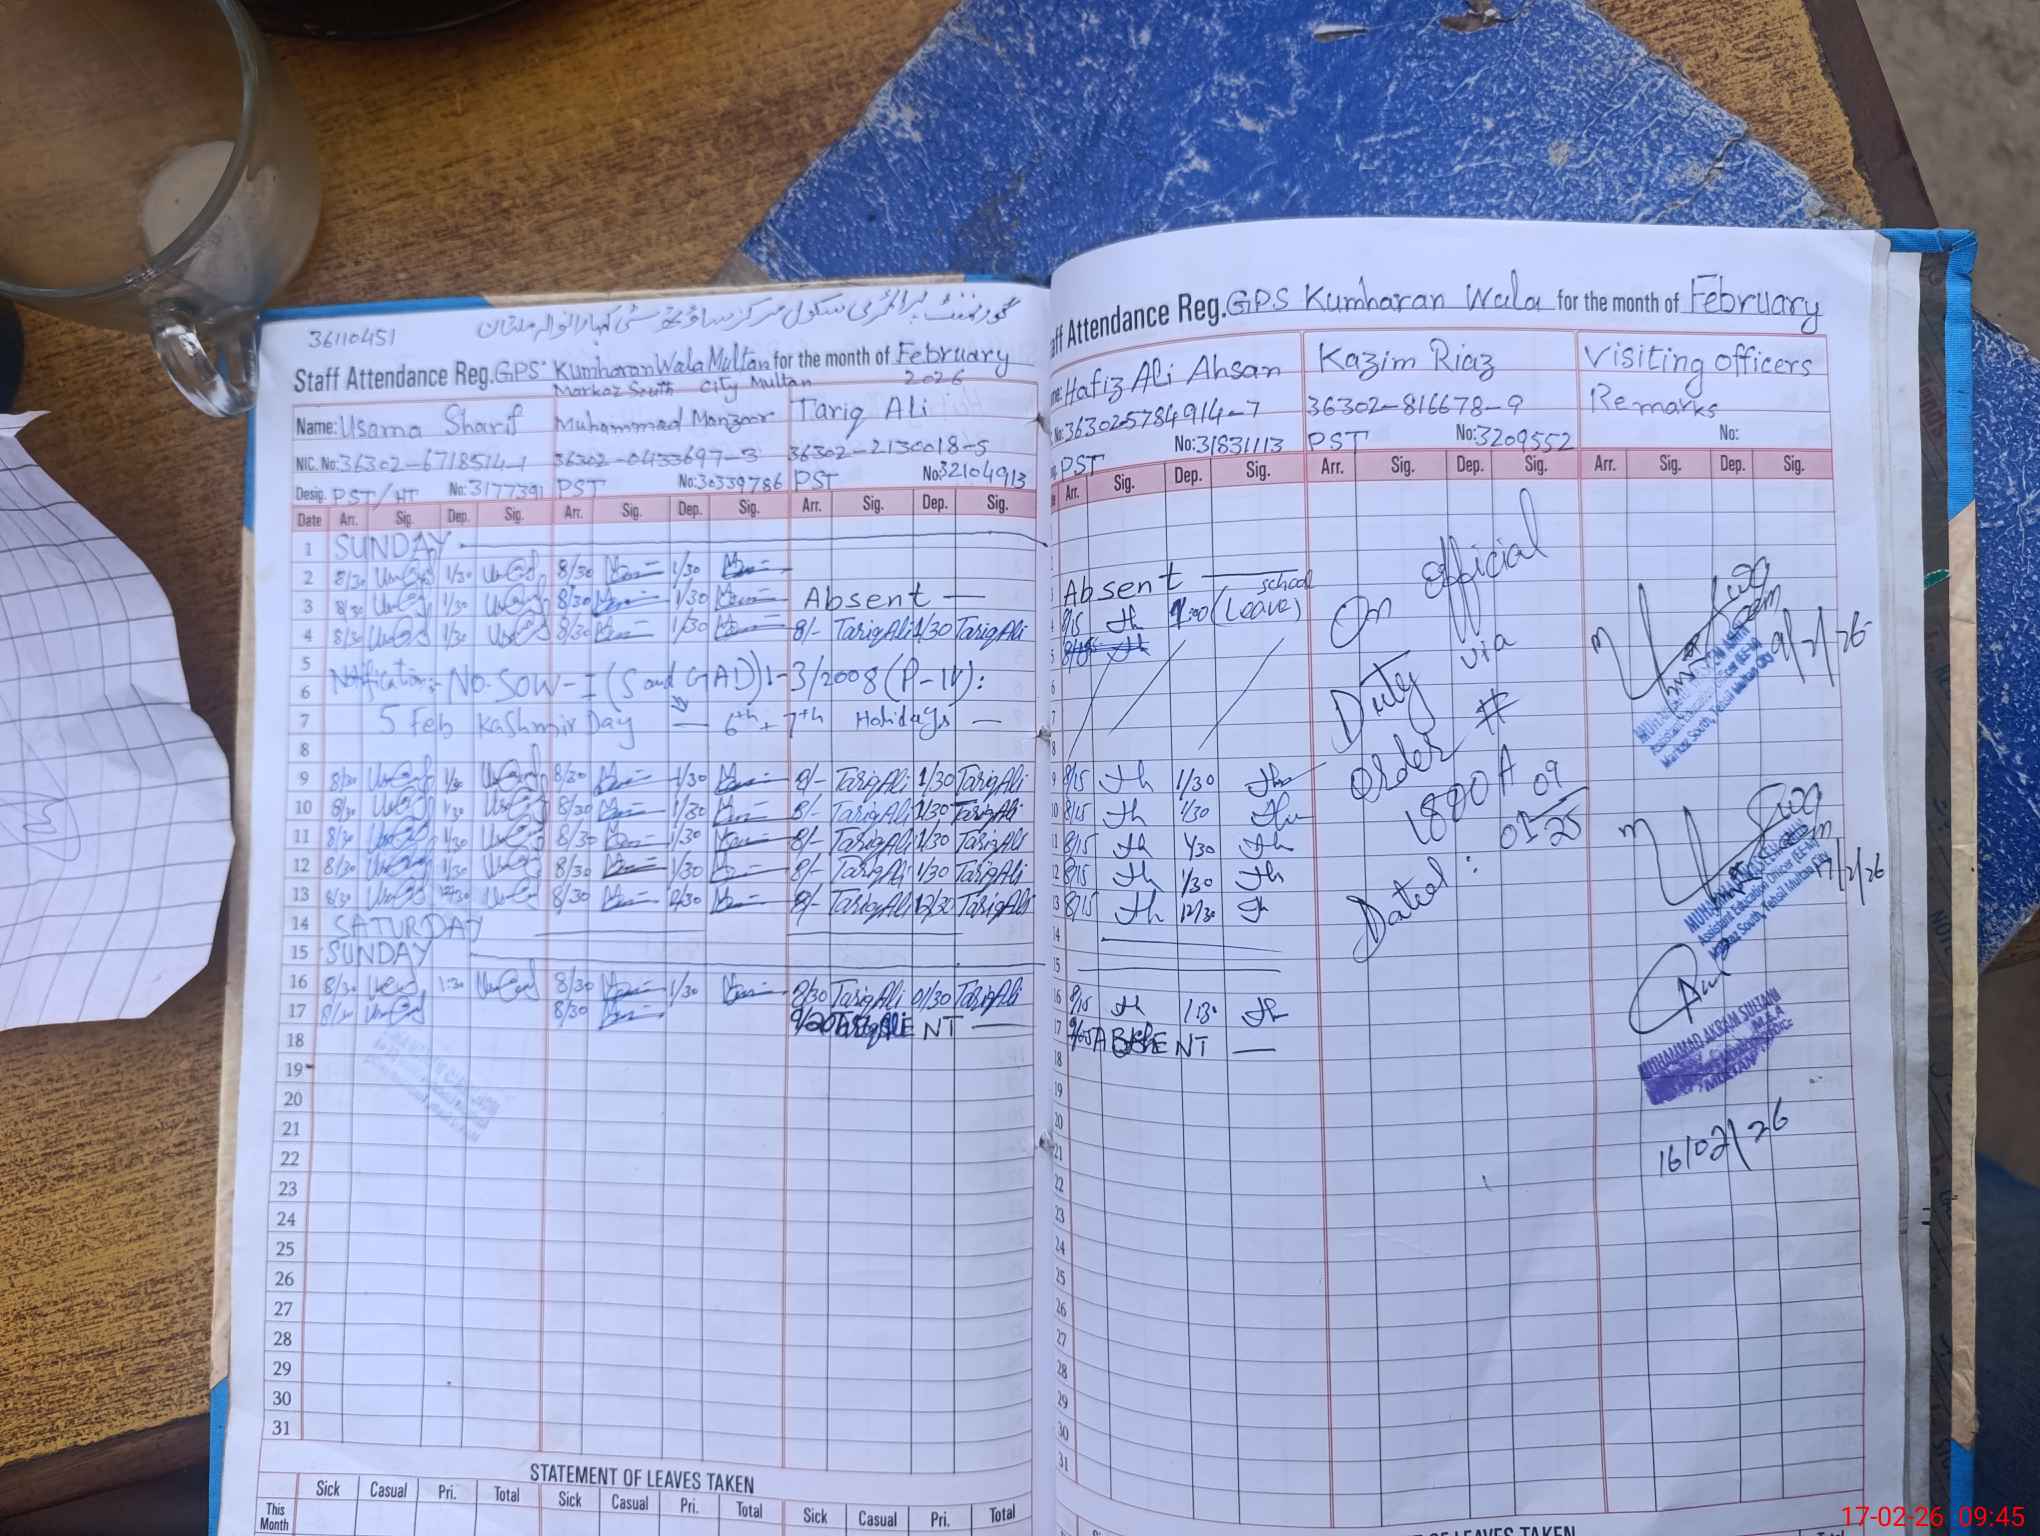 36110451 گورنمنٹ پرائمری سکول مرکز ساؤتھ سٹی کمہارانوالہ ملتان
Staff Attendance Reg. GPS Kumharan Wala Multan for the month of February
Markaz South City Multan 2026
Name: Usama Sharif Muhammad Manzoor Tariq Ali
NIC. No: 36302-6718514-1 36302-0433697-3 36302-2130018-5
Desig. PST/HT No: 3177391 PST No: 30339786 PST No: 32104913
Date Arr. Sig. Dep. Sig. Arr. Sig. Dep. Sig. Arr. Sig. Dep. Sig.
1 SUNDAY
2 8/30 1/30 8/30 1/30
3 8/30 1/30 8/30 1/30 Absent
4 8/30 1/30 8/30 1/30 8/- Tariq Ali 1/30 Tariq Ali
5
6 Notification:- No. SOW-I (S and GAD) 1-3/2008 (P-IV):
7 5 Feb Kashmir Day — 6th + 7th Holidays —
8
9 8/30 1/30 8/30 1/30 8/- Tariq Ali 1/30 Tariq Ali
10 8/30 1/30 8/30 1/30 8/- Tariq Ali 1/30 Tariq Ali
11 8/30 1/30 8/30 1/30 8/- Tariq Ali 1/30 Tariq Ali
12 8/30 1/30 8/30 1/30 8/- Tariq Ali 1/30 Tariq Ali
13 8/30 12/30 8/30 12/30 8/- Tariq Ali 12/30 Tariq Ali
14 SATURDAY
15 SUNDAY
16 8/30 1:30 8/30 1/30 8/30 Tariq Ali 01/30 Tariq Ali
17 8/30 8/30 ABSENT —
18
19
20
21
22
23
24
25
26
27
28
29
30
31
STATEMENT OF LEAVES TAKEN
Sick Casual Pri. Total Sick Casual Pri. Total Sick Casual Pri. Total
This Month
ff Attendance Reg. GPS Kumharan Wala for the month of February
me: Hafiz Ali Ahsan Kazim Riaz Visiting officers
No: 363025784914-7 36302-816678-9 Remarks
PST No: 31831113 PST No: 3209552 No:
Arr. Sig. Dep. Sig. Arr. Sig. Dep. Sig. Arr. Sig. Dep. Sig.
Absent —
8/15 school (Leave)
5
6
7
8
9 8/15 1/30
10 8/15 1/30
11 8/15 1/30
12 8/15 1/30
13 8/15 12/30
14
15
16 8/15 1:30
17 ABSENT —
18
19
20
21
22
23
24
25
26
27
28
29
30
31
On official
Duty via
order #
1800 A
Dated: 09
01-25
9/2/26
Assistant Education Officer (EE-M)
Markaz South, Tehsil Multan City
Assistant Education Officer (EE-M)
Markaz South, Tehsil Multan City
17/2/26
MUHAMMAD AKRAM SULTANI
16/02/26
OF LEAVES TAKEN
17-02-26 09:45